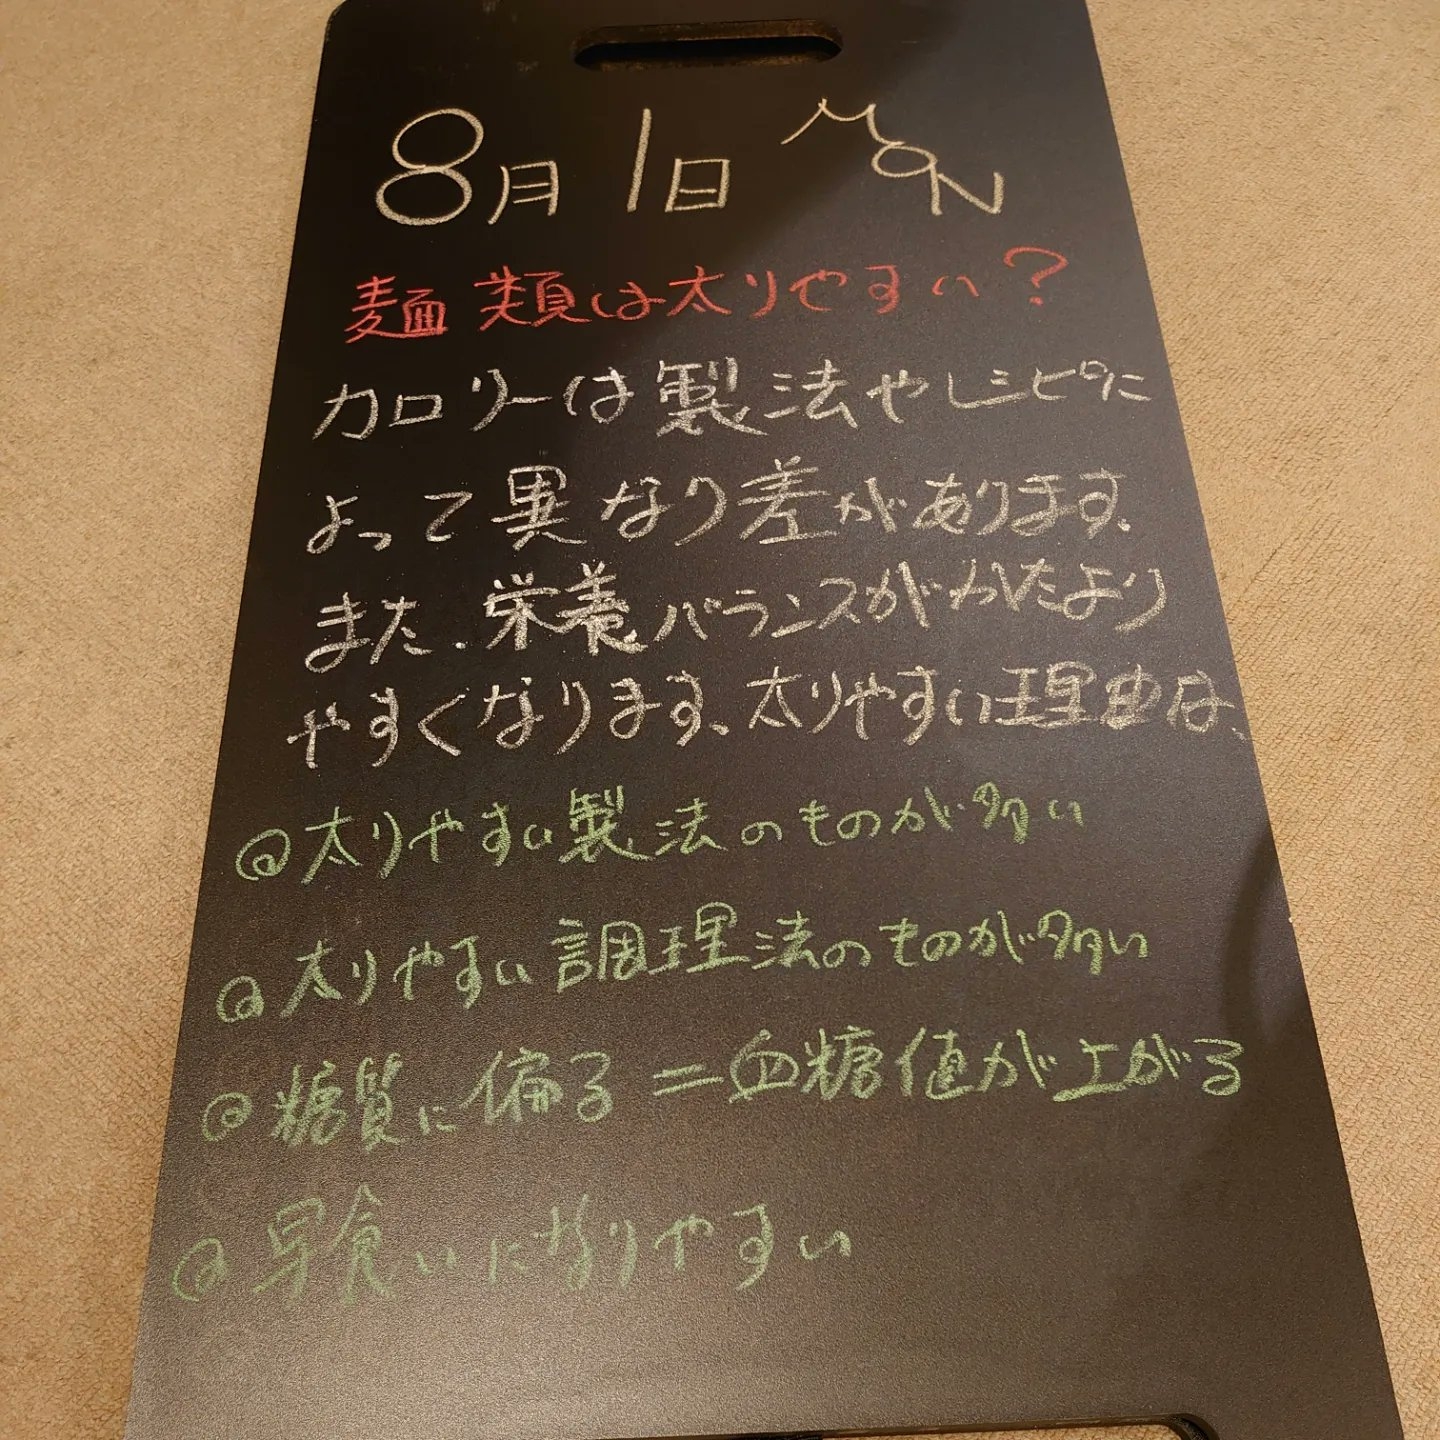 8月1日 MON
麺類は太りやすい?
カロリーは製法やレシピに
よって異なり差があります。
また、栄養バランスがかたより
やすくなります。太りやすい理由は、
@太りやすい製法のものが多い
@太りやすい調理法のものが多い
@糖質に偏る=血糖値が上がる
@早食いになりやすい